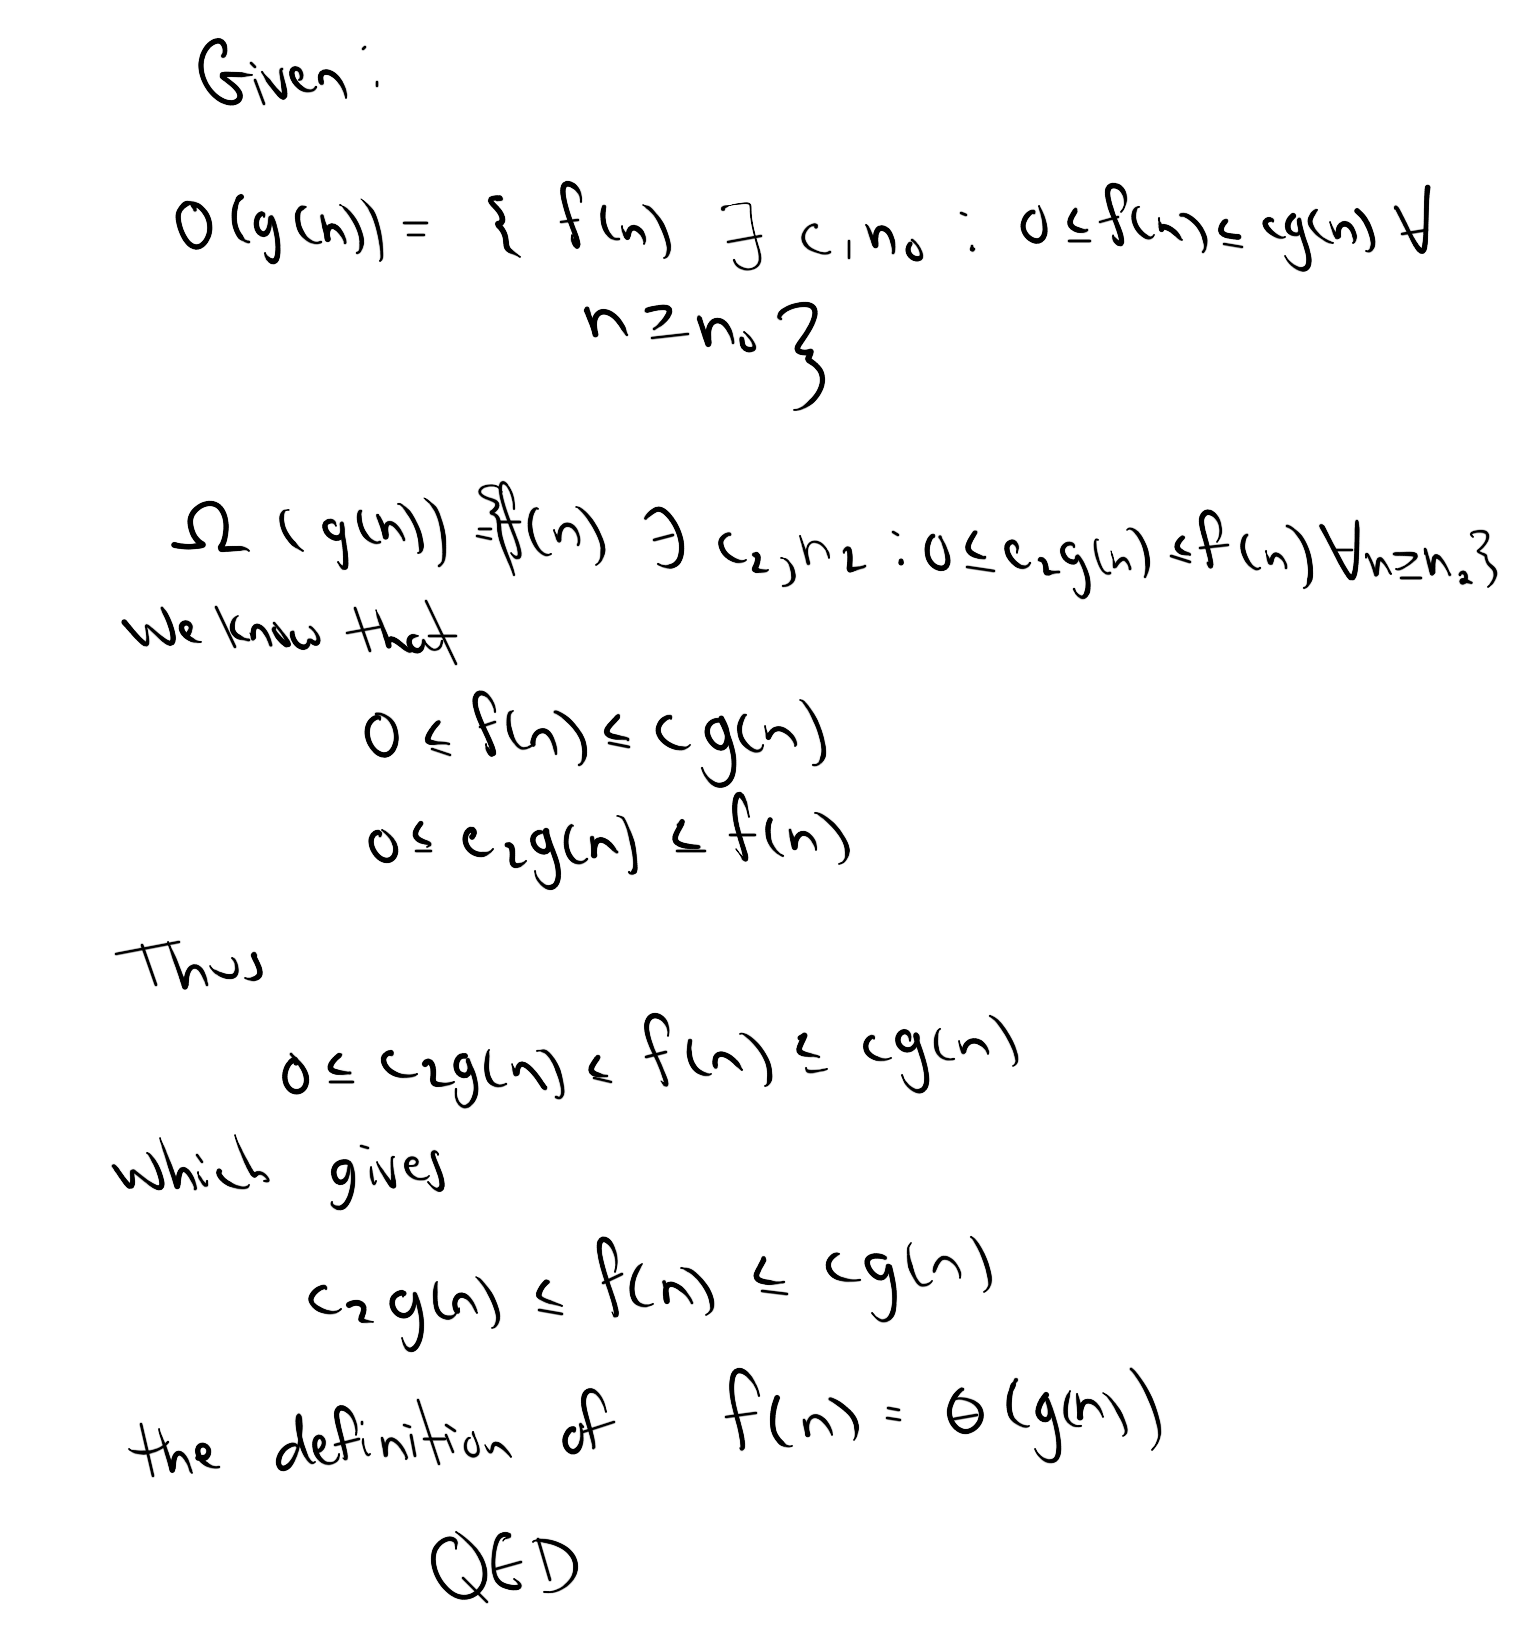 Given:
O(g(n)) = { f(n) ∃ c, n₀ : 0 ≤ f(n) ≤ cg(n) ∀
n ≥ n₀ }
Ω (g(n)) = {f(n) ∃ c₂, n₂ : 0 ≤ c₂g(n) ≤ f(n) ∀n≥n₂}
We know that
0 ≤ f(n) ≤ cg(n)
0 ≤ c₂g(n) ≤ f(n)
Thus
0 ≤ c₂g(n) ≤ f(n) ≤ cg(n)
which gives
c₂g(n) ≤ f(n) ≤ cg(n)
the definition of f(n) = Θ(g(n))
QED